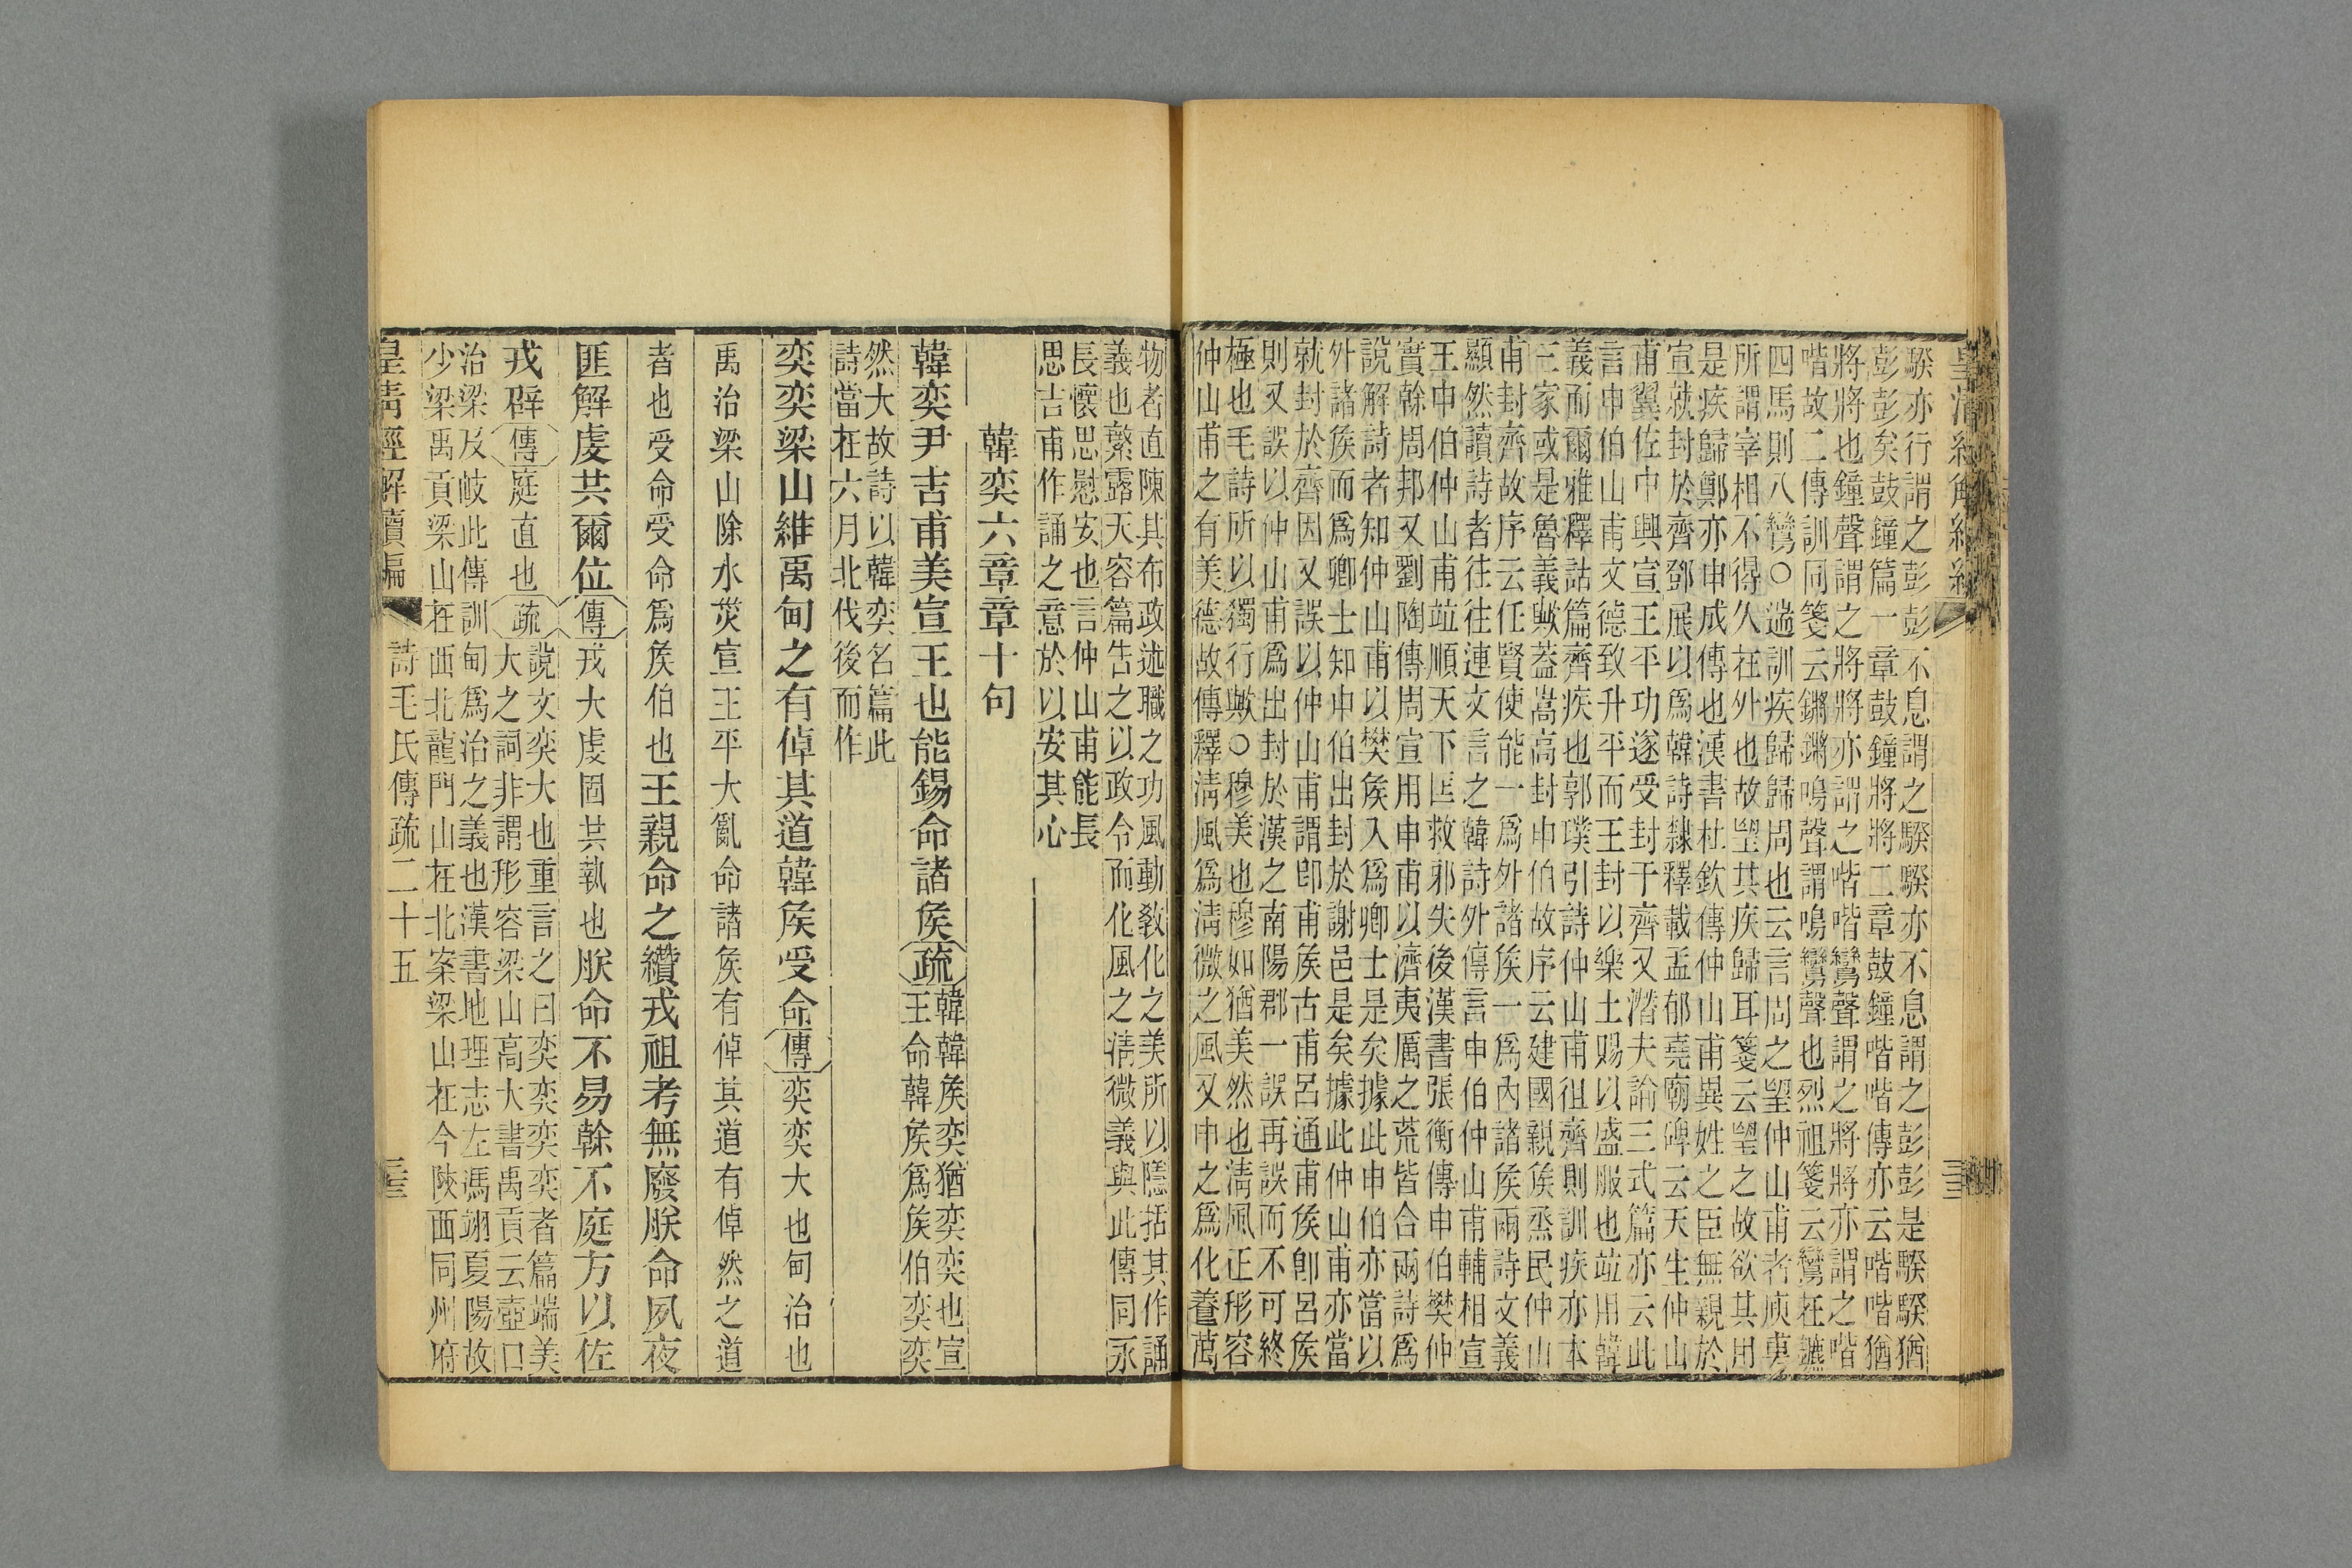 騤亦行謂之彭彭不息謂之騤騤亦不息謂之彭彭是騤騤猶
彭彭矣鼓鐘篇一章鼓鐘將將二章鼓鐘喈喈傳亦云喈喈猶
將將也鐘聲謂之將將亦謂之喈喈鸞聲謂之將將亦謂之喈
喈故二傳訓同箋云鏘鏘鳴聲謂鳴鸞聲也烈祖箋云鸞在鑣
四馬則八鸞○遄訓疾歸歸周也云言周之望仲山甫者庾
所謂宰相不得久在外也故望其疾歸耳箋云望之故欲其用
是疾歸鄭亦申成傳也漢書杜欽傳仲山甫異姓之臣無親於
宣就封於齊鄧展以爲韓詩隸釋載孟郁堯廟碑云天生仲山
甫翼佐中興宣王平功遂受封于齊又潛夫論三式篇亦云此
言申伯山甫文德致升平而王封以樂土賜以盛服也竝用韓
義而爾雅釋詁篇齊疾也郭璞引詩仲山甫徂齊則訓疾亦本
三家或是魯義歟蓋嵩高封申伯故序云建國親矦烝民仲山
甫封齊故序云任賢使能一爲外諸矦一爲內諸矦兩詩文義
顯然讀詩者往往連文言之韓詩外傳言申伯仲山甫輔相宣
王申伯仲山甫竝順天下匡救邪失後漢書張衡傳申伯樊仲
實榦周邦又劉陶傳周宣用申甫以濟夷厲之荒皆合兩詩爲
說解詩者知仲山甫以樊矦入爲卿士是矣據此申伯亦當以
外諸矦而爲卿士知申伯出封於謝邑是矣據此仲山甫亦當
就封於齊因又誤以仲山甫謂卽甫矦古甫呂通甫矦卽呂矦
則又誤以仲山甫爲出封於漢之南陽郡一誤再誤而不可終
極也毛詩所以獨行歟○穆美也穆如猶美然也淸風正形容
仲山甫之有美德故傳釋淸風爲淸微之風又申之爲化養萬
物者直陳其布政述職之功風動敎化之美所以隱括其作誦
義也繁露天容篇告之以政令而化風之淸微義與此傳同永
長懷思慰安也言仲山甫能長
思吉甫作誦之意於以安其心
韓奕六章章十句
韓奕尹吉甫美宣王也能錫命諸矦疏韓韓矦奕猶奕奕也宣
王命韓矦爲矦伯奕奕
然大故詩以韓奕名篇此
詩當在六月北伐後而作
奕奕梁山維禹甸之有倬其道韓矦受命傳奕奕大也甸治也
禹治梁山除水災宣王平大亂命諸矦有倬其道有倬然之道
者也受命受命爲矦伯也王親命之纘戎祖考無廢朕命夙夜
匪解虔共爾位傳戎大虔固共執也朕命不易榦不庭方以佐
戎辟傳庭直也疏說文奕大也重言之曰奕奕奕奕者篇端美
大之詞非謂形容梁山高大書禹貢云壺口
治梁及岐此傳訓甸爲治之義也漢書地理志左馮翊夏陽故
少梁禹貢梁山在西北龍門山在北案梁山在今陝西同州府
皇淸經解續編
詩毛氏傳疏二十五